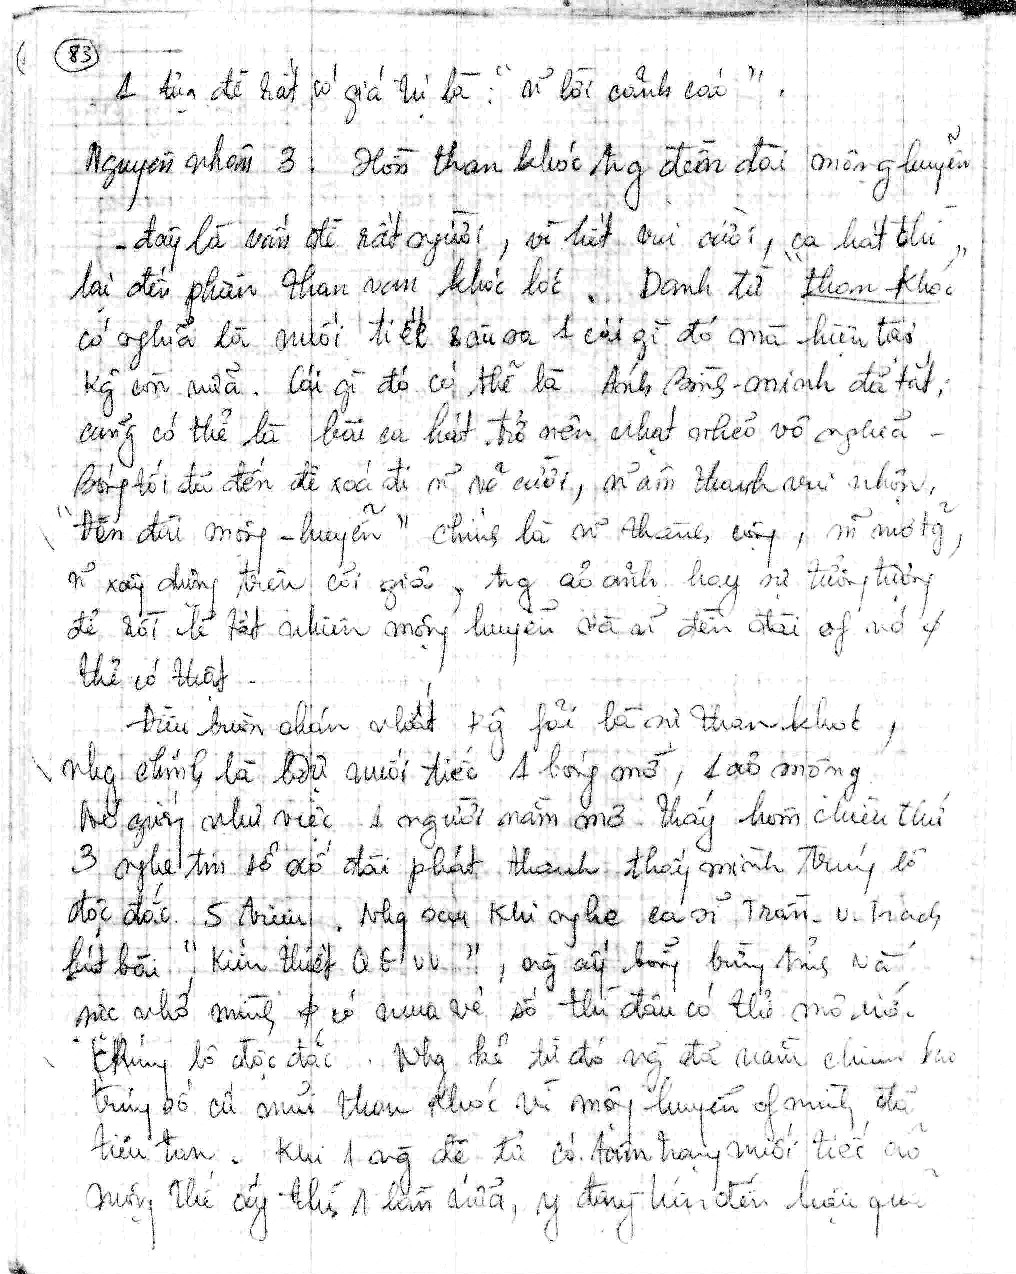 83
1 tựa đề rất có giá trị là: "~ lời cảnh cáo".
Nguyên nhân 3: Hãy than khóc tại đền đài mộng huyễn
- đây là vấn đề rất người, vì hết vui cười, ca hát thì
lại đến phần than van khóc lóc. Danh từ "than-khóc"
có nghĩa là nuối tiếc sâu xa 1 cái gì đó mà hiện tại
kg còn nữa. Cái gì đó có thể là Ánh Bình-minh đã tắt;
cũng có thể là bài ca hát trở nên nhạt nhẽo vô nghĩa -
Bóng tối đã đến để xoá đi ~ nụ cười, ~ âm thanh vui nhộn.
"Đền đài mộng-huyễn" chính là ~ thành công, ~ mơ mộng,
~ xây dựng trên cõi giả, ảo ảnh hay sự tưởng tượng
để rồi lẽ tất nhiên mộng huyễn và ~ đền đài of nó
thể có thật.
Điều buồn chán nhất kg fải là sự than khóc,
nhg chính là nuối tiếc 1 bóng mờ, 1 ảo mộng
Nó giống như việc 1 người nằm mơ thấy hôm chiều thứ
3 nghe tin sổ xố đài phát thanh thấy mình trúng lô
độc đắc 5 triệu. Nhg sau khi nghe ca sĩ Trần v. Trạch
hát bài "Kiến thiết Q G VN", ông ấy bỗng bừng tỉnh và
nhớ mình có mua vé số thì đâu có thể mơ
trúng lô độc đắc. Nhg kể từ đó ông đã nằm chiêm bao
trúng số cứ mãi than khóc vì mộng huyễn of mình đã
tiêu tan. Khi 1 ng đệ tử có tâm trạng nuối tiếc ảo
mộng thế ấy thì, 1 lần nữa, y đừng hòng đến hiệu quả